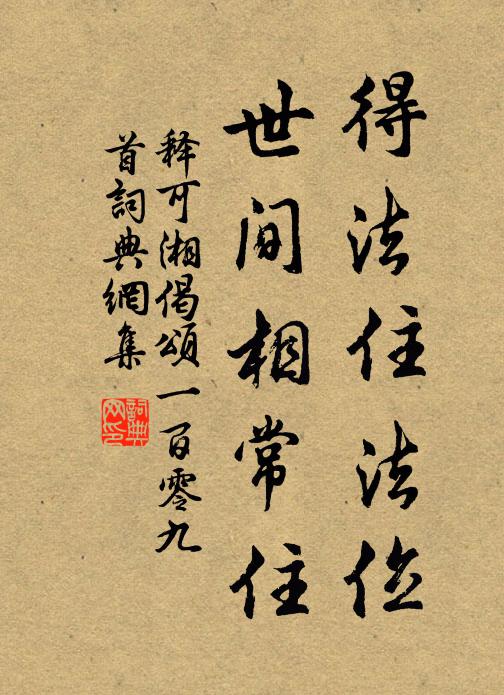 得法住法位
世間相常住
释可湘偈頌一百零九
首詞典網集
詞典
网印